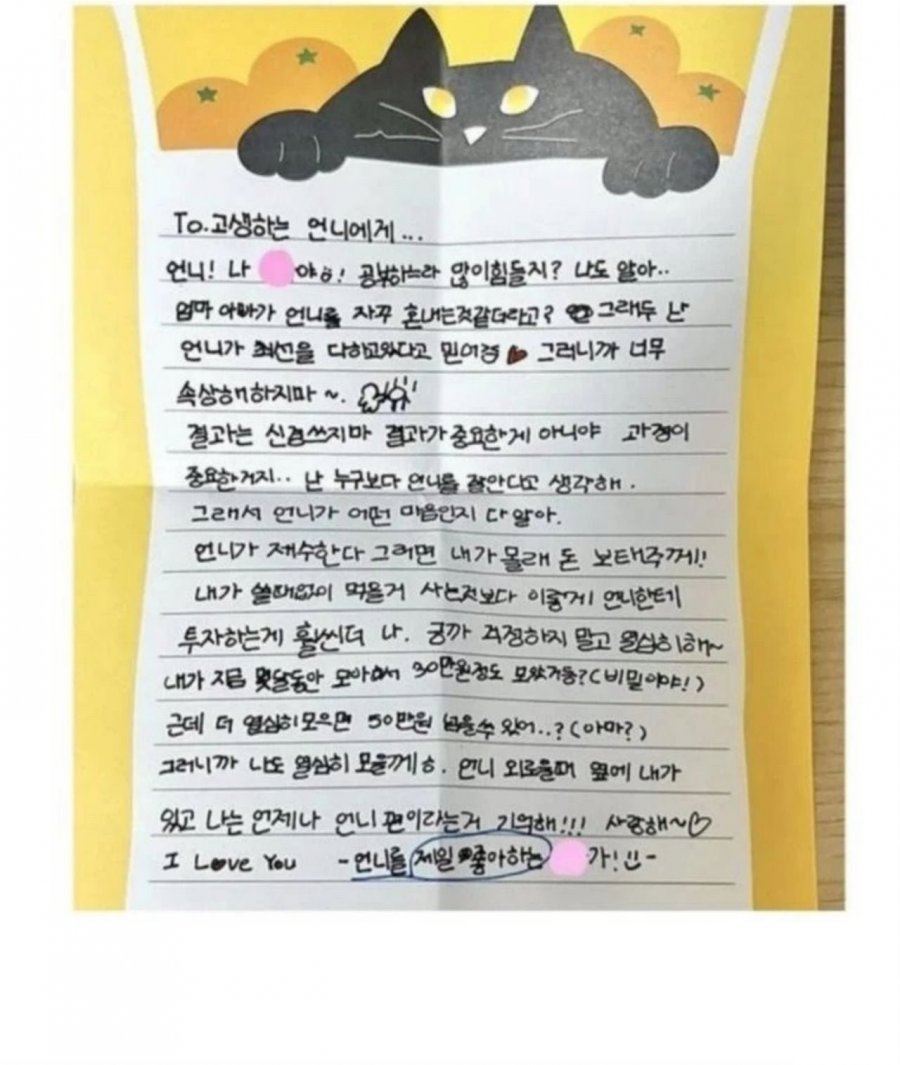 To.고생하는 언니에게...
언니! 나 야ㅎ! 공부하느라 많이힘들지? 나도 알아..
엄마 아빠가 언니를 자꾸 혼내는것같더라고? 그래두 난
언니가 최선을 다하고있다고 믿어경 그러니까 너무
속상해하지마~.
결과는 신경쓰지마 결과가 중요한게 아니야 과정이
중요한거지.. 난 누구보다 언니를 잘안다고 생각해.
그래서 언니가 어떤 마음인지 다 알아.
언니가 재수한다 그러면 내가 몰래 돈 보태줄께!
내가 쓸때없이 먹을거 사는것보다 이렇게 언니한테
투자하는게 훨씬더 나. 긍까 걱정하지 말고 열심히해~
내가 지금 몇달동안 모아서 30만원정도 모았거등?(비밀이야!)
근데 더 열심히모으면 50만원 넘을수 있어..?(아마?)
그러니까 나도 열심히 모을께ㅎ. 언니 외로울때 옆에 내가
있고 나는 언제나 언니 편이라는거 기억해!!! 사랑해~♡
I Love You -언니를 제일 좋아하는 가!-